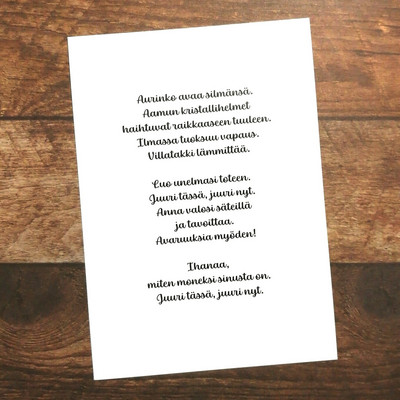 Aurinko avaa silmänsä.
Aamun kristallihelmet
haihtuvat raikkaaseen tuuleen.
Ilmassa tuoksuu vapaus.
Villatakki lämmittää.
Luo unelmasi toteen.
Juuri tässä, juuri nyt.
Anna valosi säteillä
ja tavoittaa.
Avaruuksia myöden!
Ihanaa,
miten moneksi sinusta on.
Juuri tässä, juuri nyt.